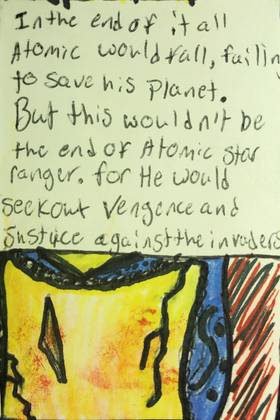 In the end of it all
Atomic would fall, failin
to save his planet.
But this wouldn't be
the end of Atomic star
ranger. for He would
seekout vengence and
justyce against the invaders